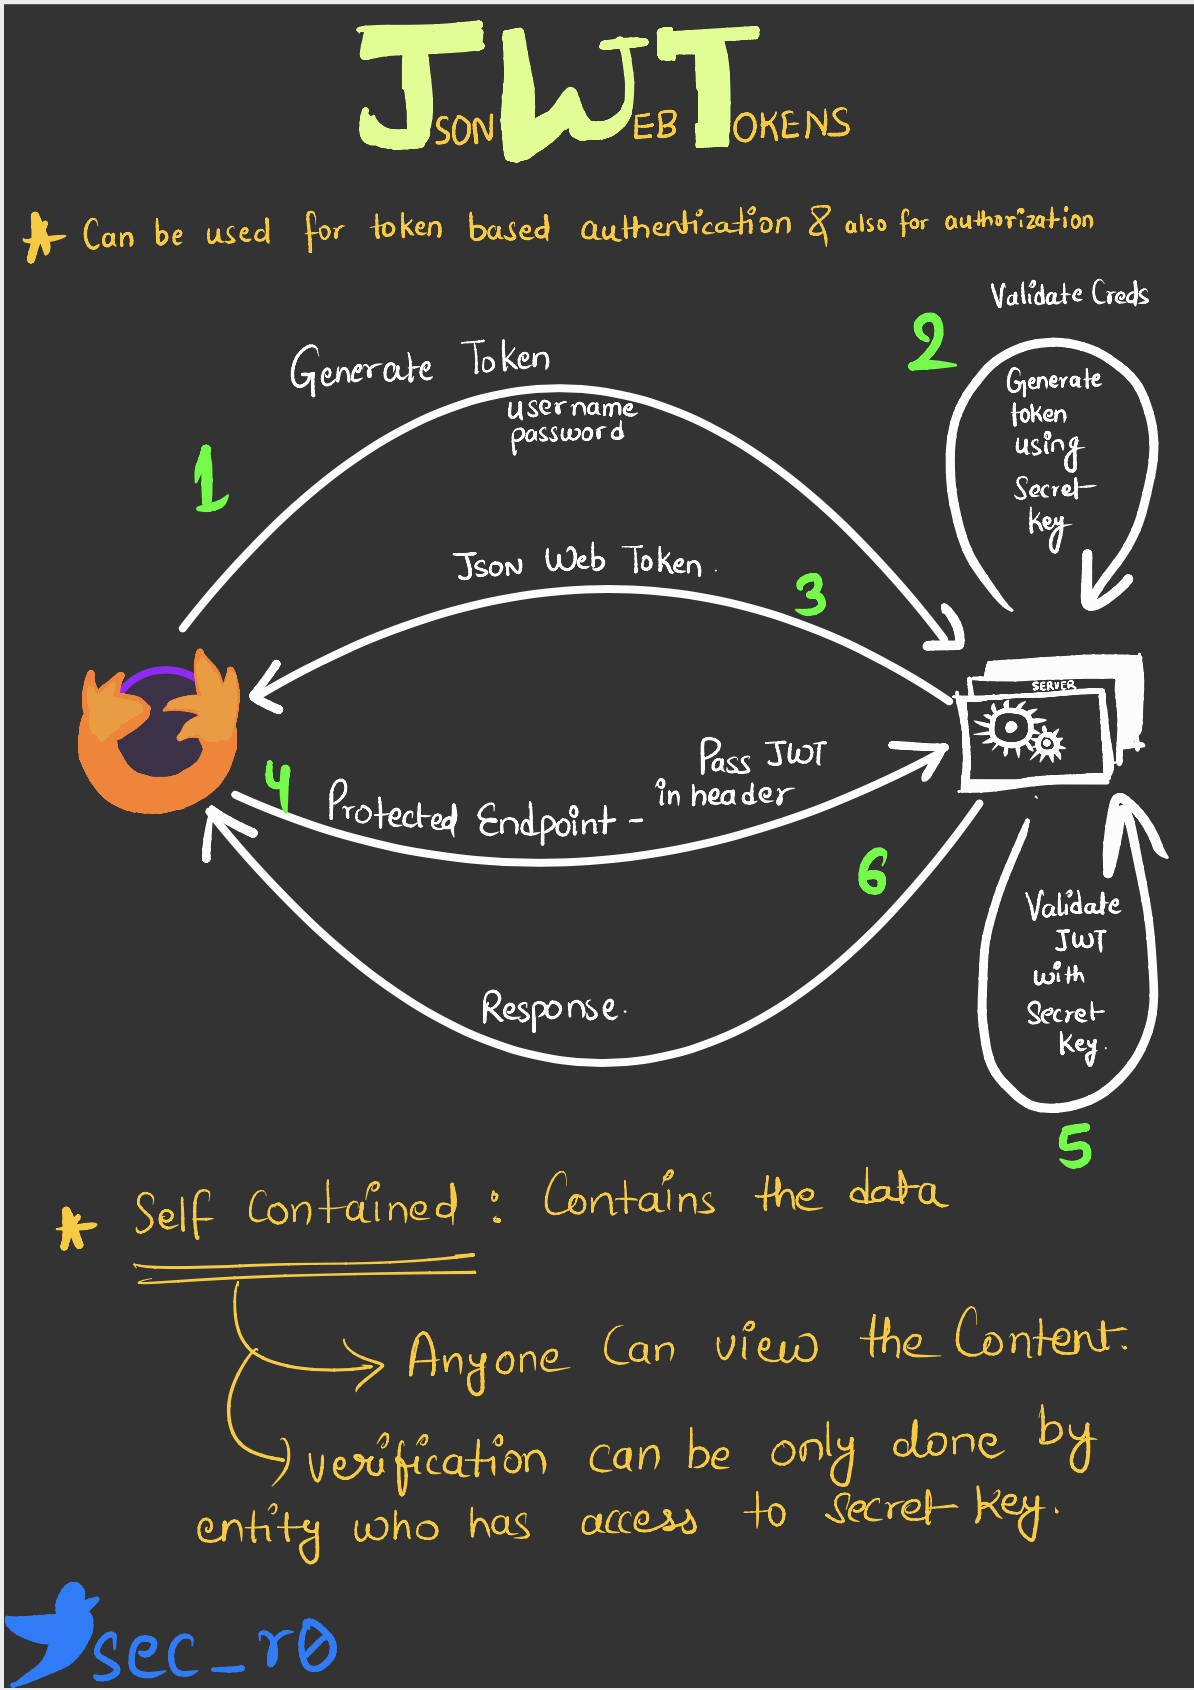 JSON WEB TOKENS
Can be used for token based authentication & also for authorization
Validate Creds
2
Generate Token
username
password
Generate
token
using
Secret
key
1
Json Web Token.
3
SERVER
4
Protected Endpoint - Pass JWT
in header
6
Validate
JWT
with
Secret
key.
Response.
5
Self Contained : Contains the data
Anyone Can view the Content.
verification can be only done by
entity who has access to secret key.
sec_r0